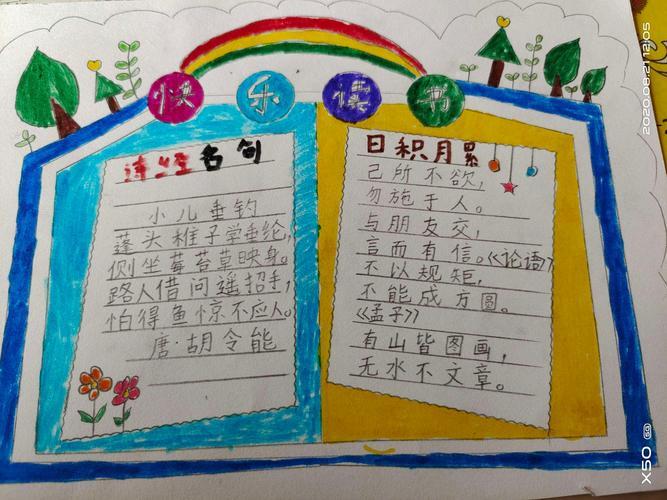 快乐读书
诗经名句
小儿垂钓
蓬头稚子学垂纶,
侧坐莓苔草映身。
路人借问遥招手,
怕得鱼惊不应人。
唐·胡令能
日积月累
己所不欲,
勿施于人。
与朋友交,
言而有信。《论语》
不以规矩,
不能成方圆。
《孟子》
有山皆图画,
无水不文章。
2020.08.21 12:05
X50 5G